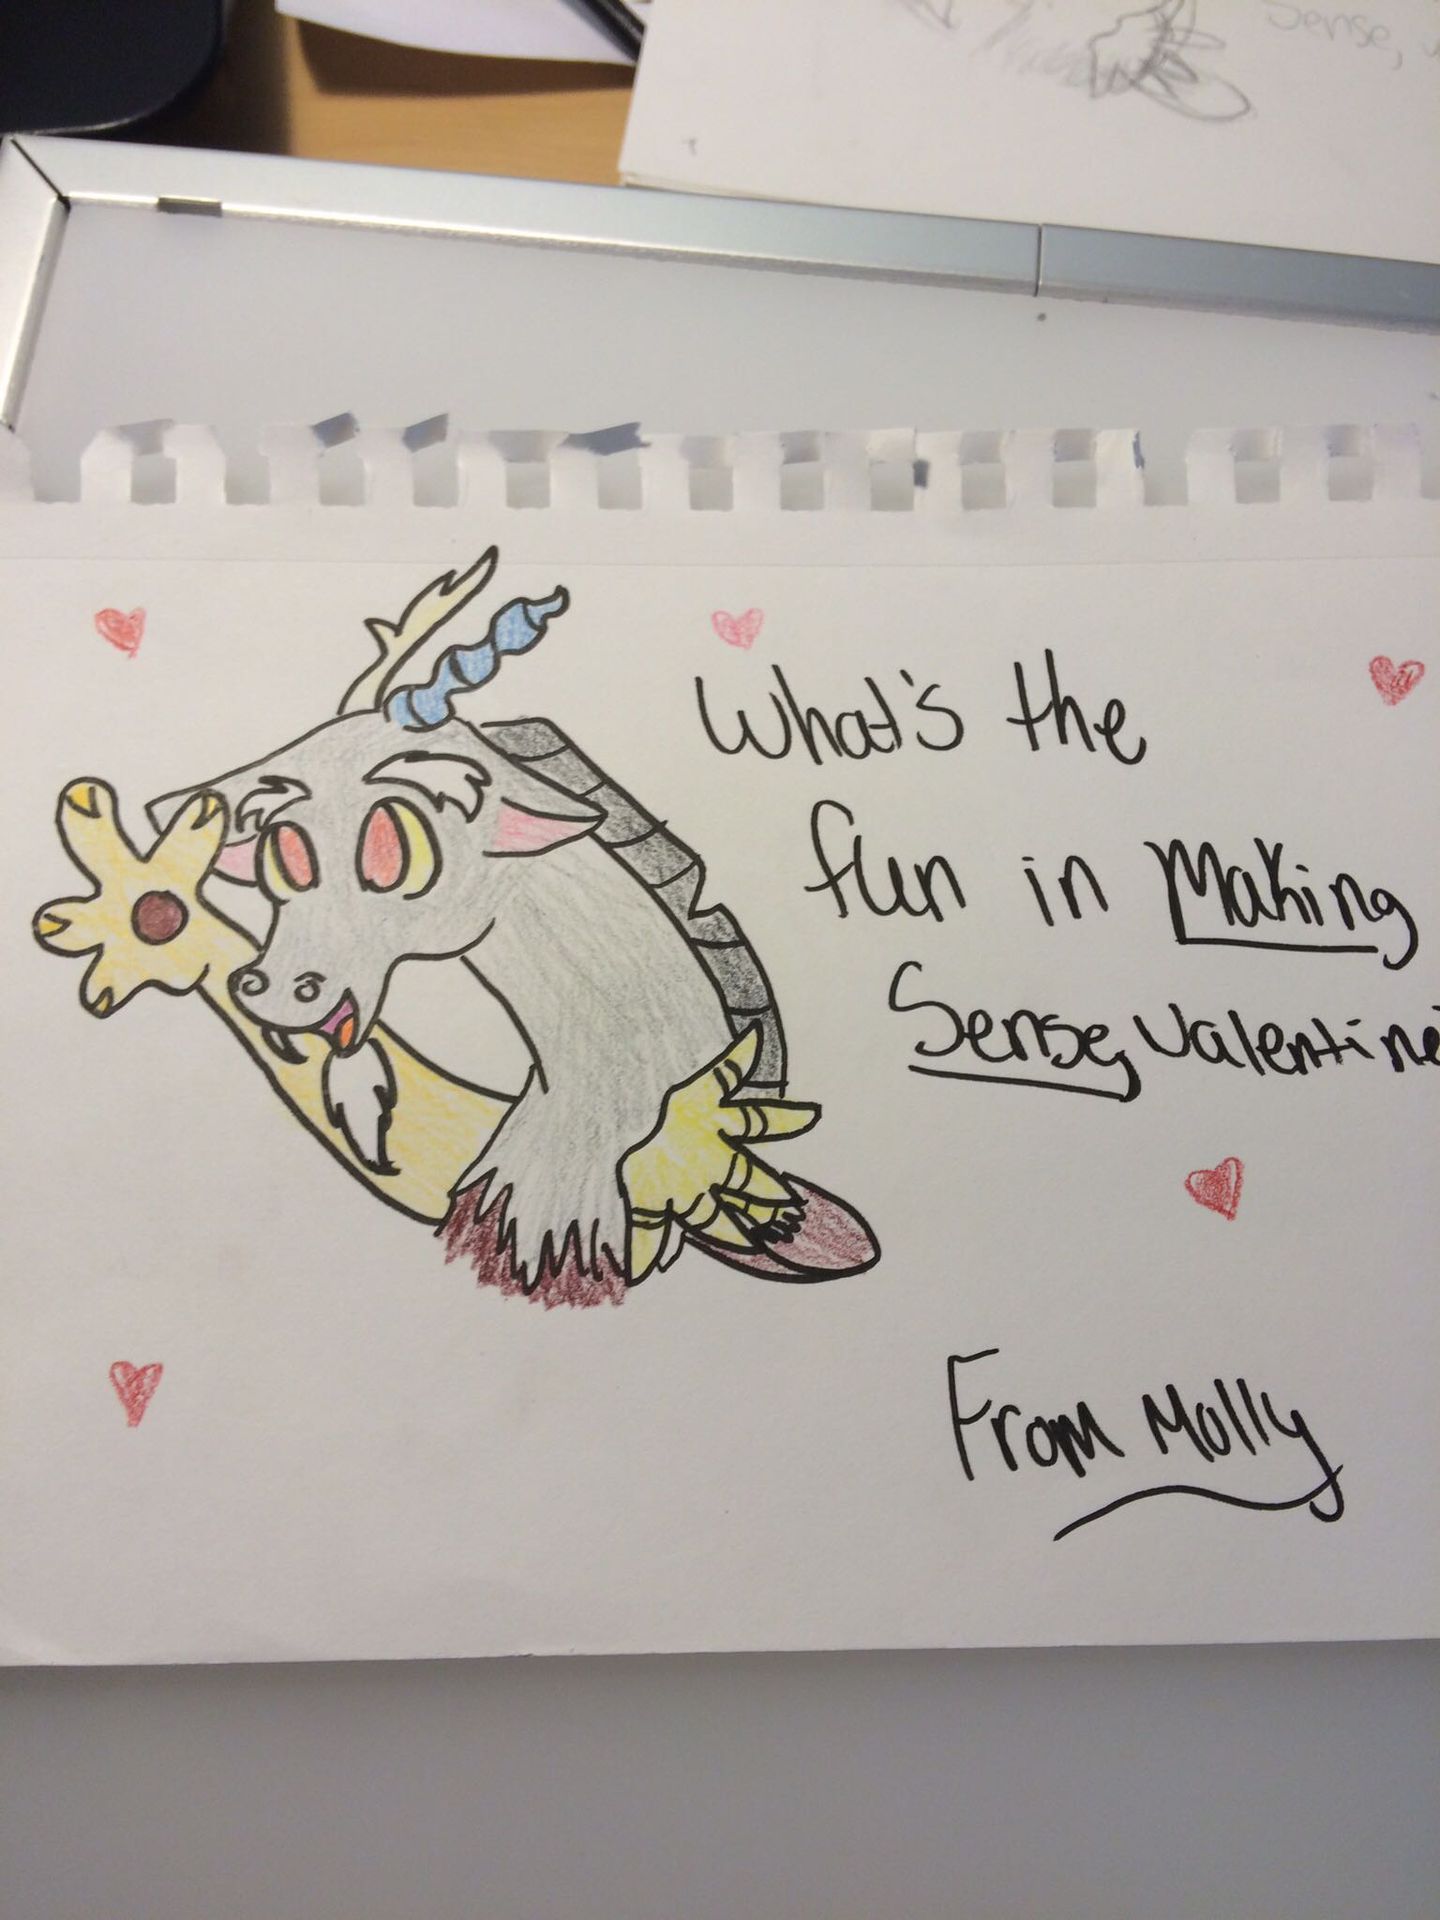 Sense,
What's the
fun in Making
Sense, Valentine
From Molly